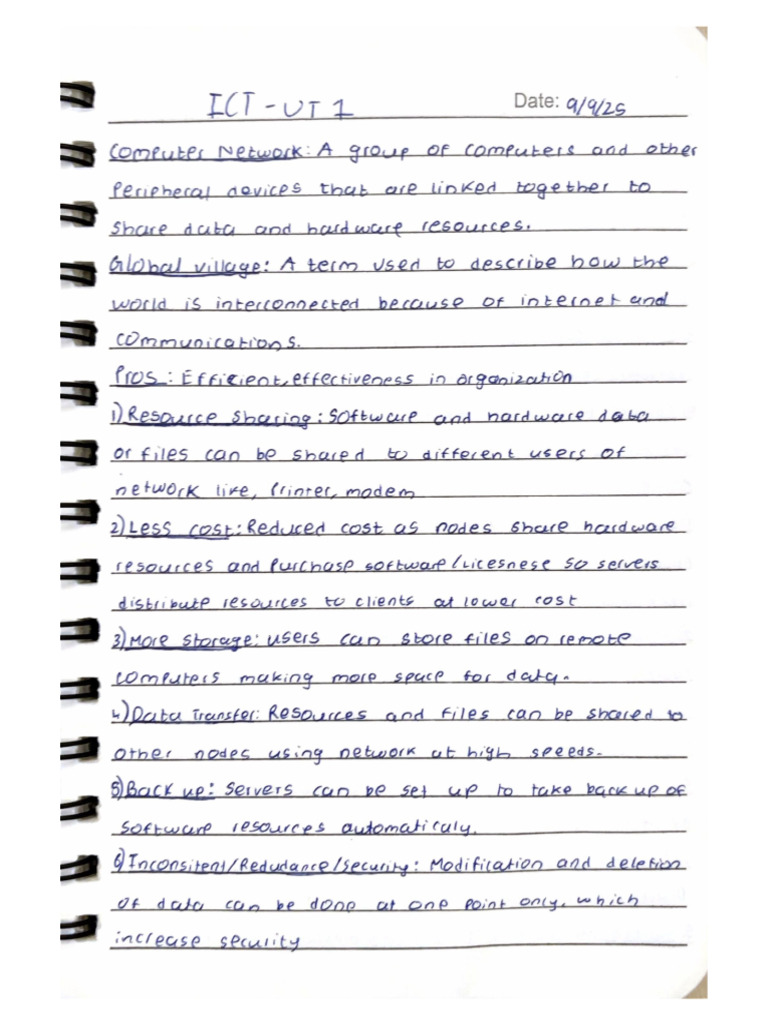 ICT - UT 1 Date: 9/9/25
Computer Network: A group of computers and other
Peripheral devices that are linked together to
share data and hardware resources.
Global village: A term used to describe how the
world is interconnected because of internet and
communications.
Pros: Efficient, effectiveness in organization
1) Resource sharing: Software and hardware data
or files can be shared to different users of
network like, Printer, modem
2) Less cost: Reduced cost as nodes share hardware
resources and purchase software/Licesnese so servers
distribute resources to clients at lower cost
3) More storage: users can store files on remote
computers making more space for data.
4) Data Transfer: Resources and files can be shared to
other nodes using network at high speeds.
5) Back up: Servers can be set up to take back up of
software resources automaticaly.
6) Inconsitent/Redudance/security: Modification and deletion
of data can be done at one point only, which
increase security